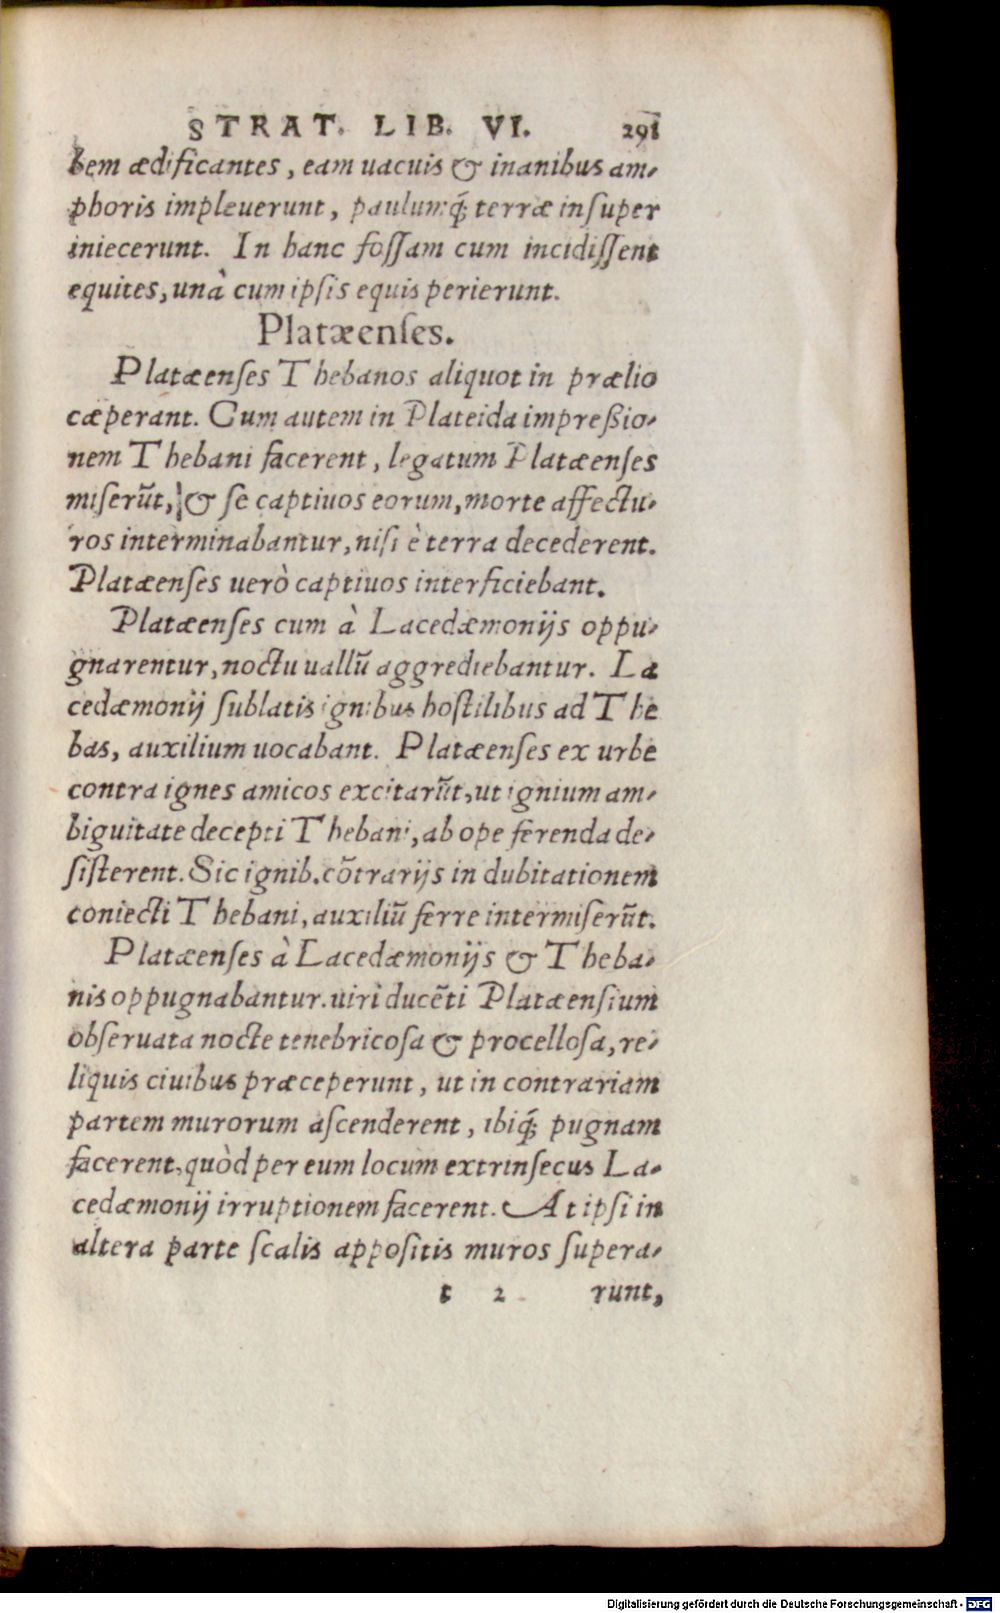 STRAT. LIB. VI. 291
bem ædificantes, eam uacuis & inanibus am-
phoris impleuerunt, paulumq́; terræ insuper
iniecerunt. In hanc fossam cum incidissent
equites, unà cum ipsis equis perierunt.
Platæenses.
Platæenses Thebanos aliquot in prælio
cæperant. Cum autem in Plateida impreßio-
nem Thebani facerent, legatum Platæenses
miserũt, & se captiuos eorum, morte affectu-
ros interminabantur, nisi è terra decederent.
Platæenses uerò captiuos interficiebant.
Platæenses cum à Lacedæmonijs oppu-
gnarentur, noctu uallũ aggrediebantur. La
cedæmonij sublatis ignibus hostilibus ad The
bas, auxilium uocabant. Platæenses ex urbe
contra ignes amicos excitarũt, ut ignium am-
biguitate decepti Thebani, ab ope ferenda de-
sisterent. Sic ignib. cõtrarijs in dubitationem
coniecti Thebani, auxiliũ ferre intermiserũt.
Platæenses à Lacedæmonijs & Theba-
nis oppugnabantur. uiri ducẽti Platæensium
obseruata nocte tenebricosa & procellosa, re-
liquis ciuibus præceperunt, ut in contrariam
partem murorum ascenderent, ibiq́; pugnam
facerent, quòd per eum locum extrinsecus La-
cedæmonij irruptionem facerent. At ipsi in
altera parte scalis appositis muros supera-
t 2 runt,
Digitalisierung gefördert durch die Deutsche Forschungsgemeinschaft - DFG